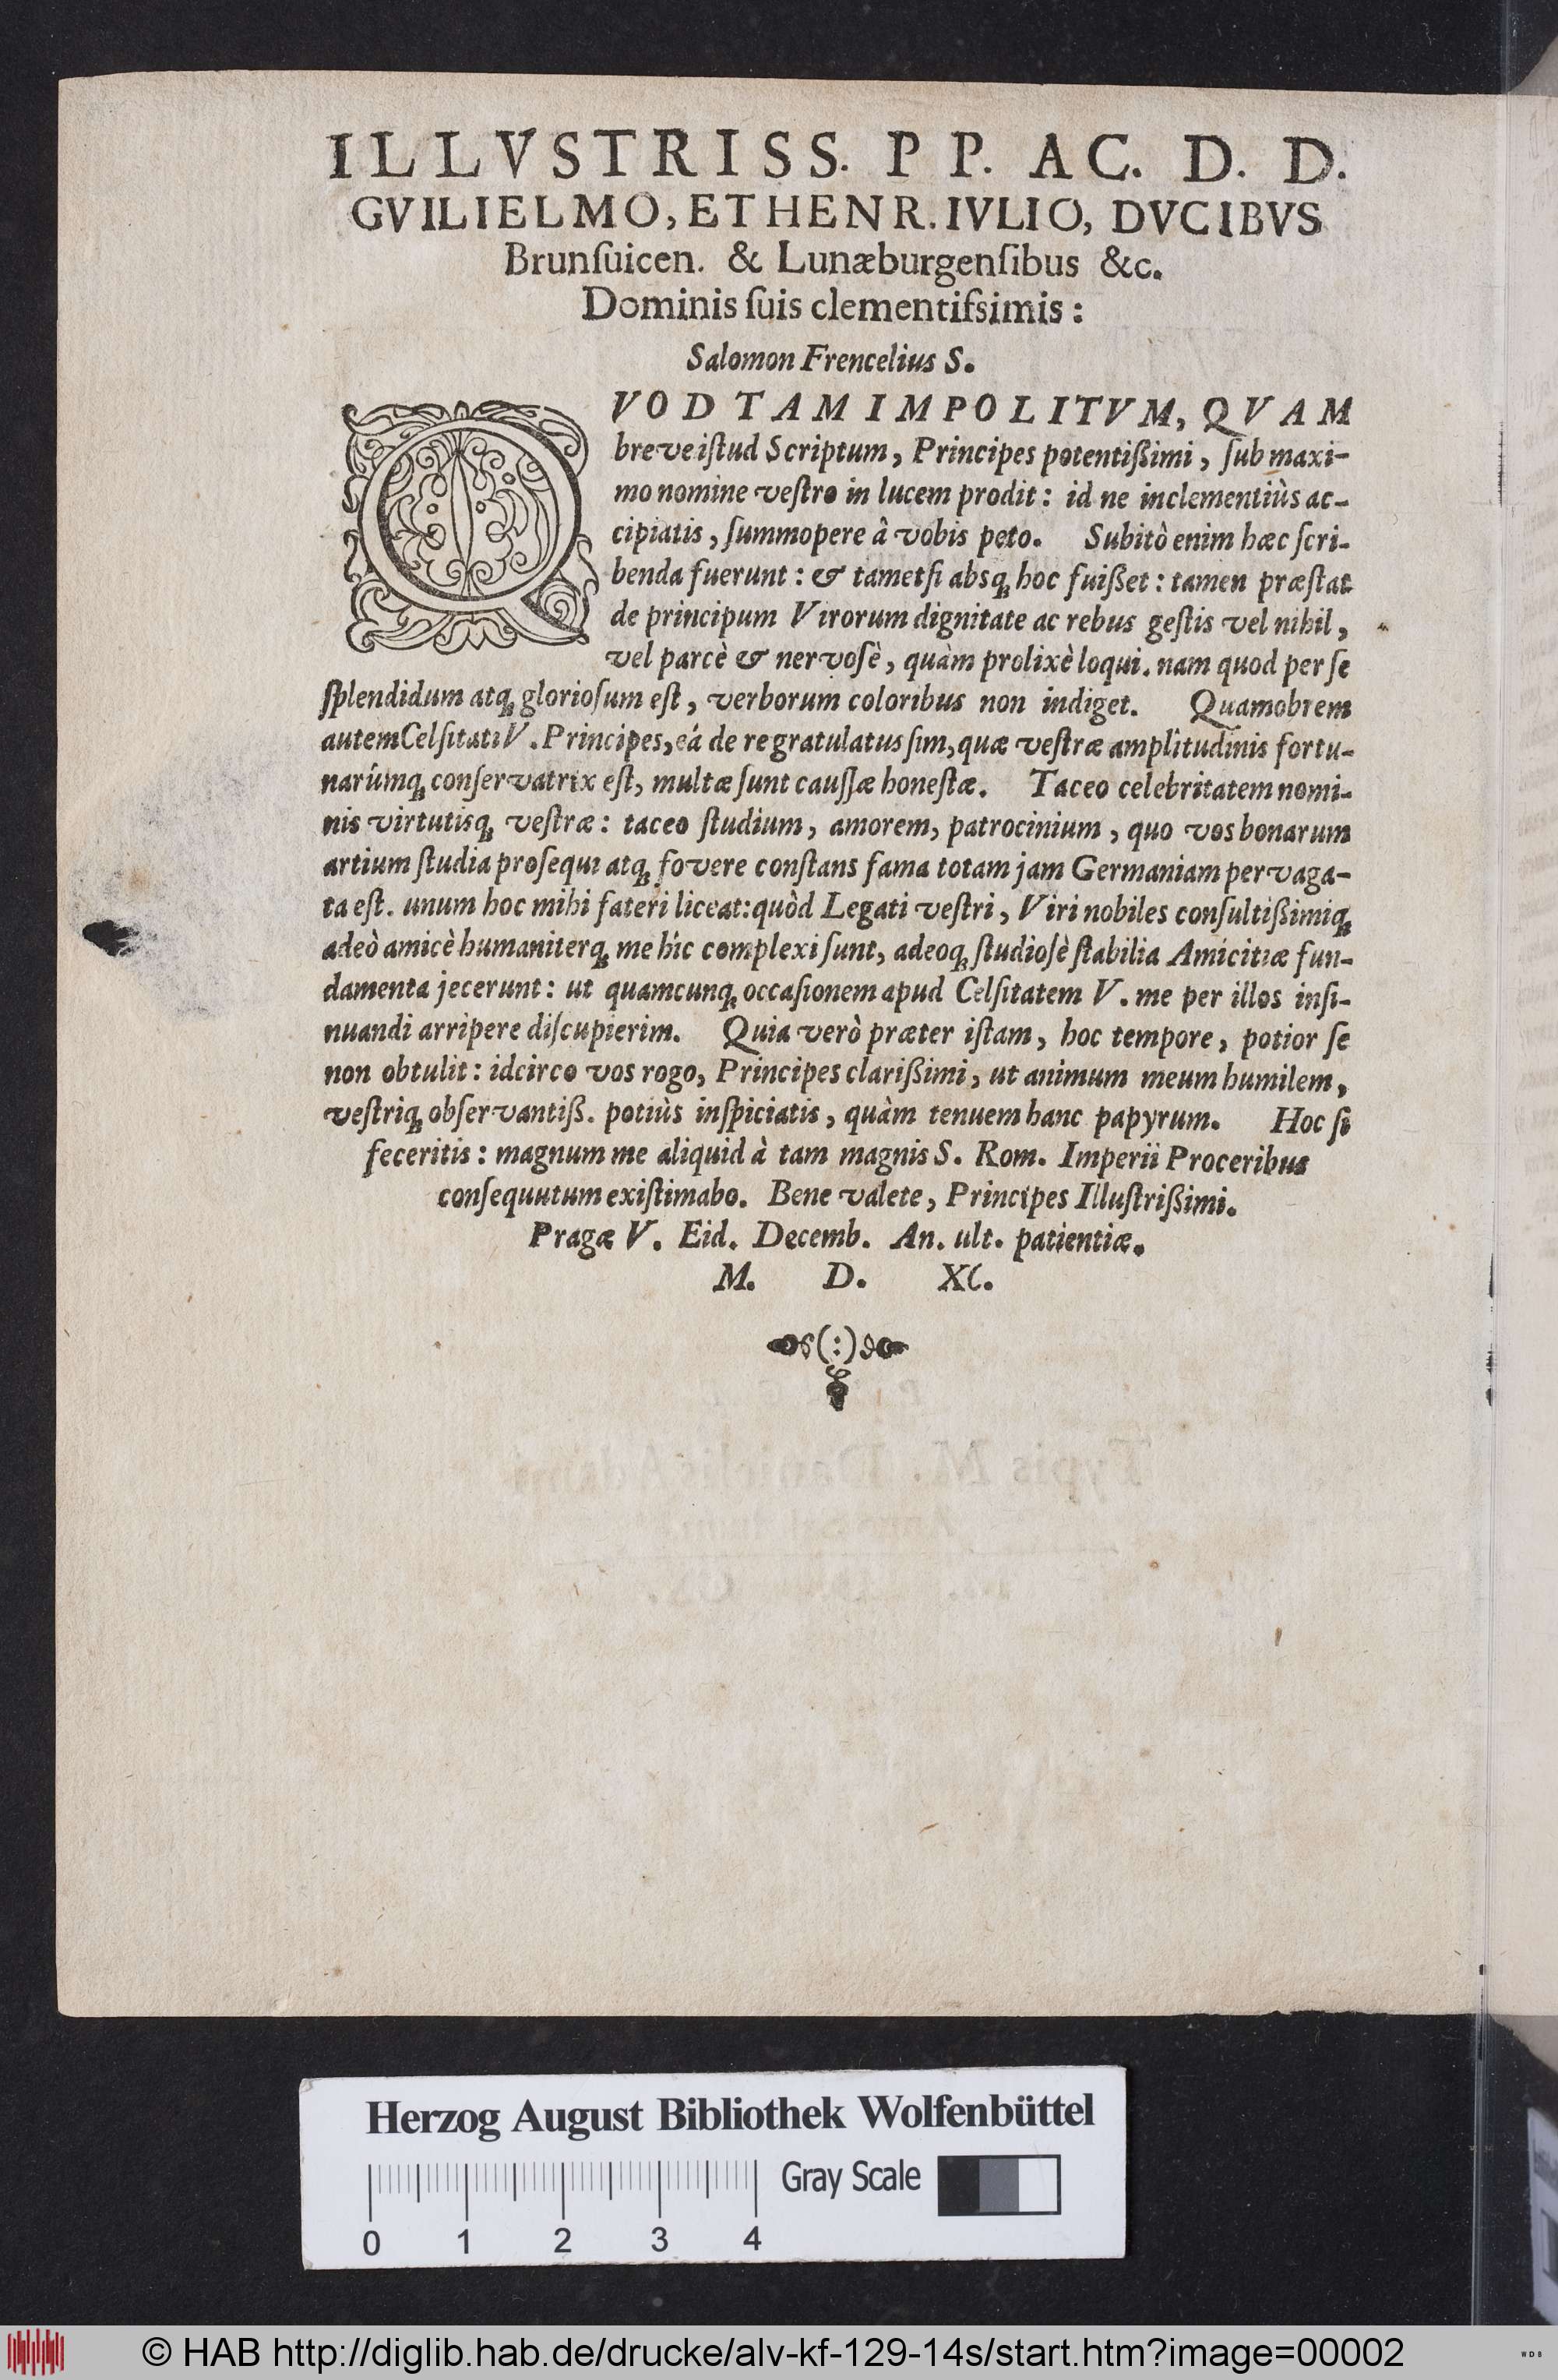 ILLVSTRISS. PP. AC. D. D.
GVILIELMO, ET HENR. IVLIO, DVCIBVS
Brunſuicen. & Lunæburgenſibus &c.
Dominis ſuis clementiſsimis:
Salomon Frencelius S.
QVOD TAM IMPOLITVM, QVAM
breve iſtud Scriptum, Principes potentißimi, ſub maxi-
mo nomine veſtro in lucem prodit: id ne inclementiùs ac-
cipiatis, ſummopere â vobis peto. Subitò enim hæc ſcri-
benda fuerunt: & tametſi absq; hoc fuißet: tamen præſtat
de principum Virorum dignitate ac rebus geſtis vel nihil,
vel parcè & nervoſè, quàm prolixè loqui. nam quod per ſe
ſplendidum atq; glorioſum eſt, verborum coloribus non indiget. Quamobrem
autem Celſitati V. Principes, eá de re gratulatus ſim, quæ veſtræ amplitudinis fortu-
narúmq; conſervatrix eſt, multæ ſunt cauſſæ honeſtæ. Taceo celebritatem nomi-
nis virtutisq; veſtræ: taceo ſtudium, amorem, patrocinium, quo vos bonarum
artium ſtudia proſequi atq; fovere conſtans fama totam jam Germaniam pervaga-
ta eſt. unum hoc mihi fateri liceat: quòd Legati veſtri, Viri nobiles conſultißimiq;
adeò amicè humaniterq; me hîc complexi ſunt, adeoq; ſtudioſè ſtabilia Amicitiæ fun-
damenta jecerunt: ut quamcunq; occaſionem apud Celſitatem V. me per illos inſi-
nuandi arripere diſcupierim. Quia verò præter iſtam, hoc tempore, potior ſe
non obtulit: idcirco vos rogo, Principes clarißimi, ut animum meum humilem,
veſtriq; obſervantiß. potiùs inſpiciatis, quàm tenuem hanc papyrum. Hoc ſi
feceritis: magnum me aliquid à tam magnis S. Rom. Imperii Proceribus
conſequutum exiſtimabo. Bene valete, Principes Illuſtrißimi.
Pragæ V. Eid. Decemb. An. ult. patientiæ.
M. D. XC.
Herzog August Bibliothek Wolfenbüttel
Gray Scale
0 1 2 3 4
© HAB http://diglib.hab.de/drucke/alv-kf-129-14s/start.htm?image=00002